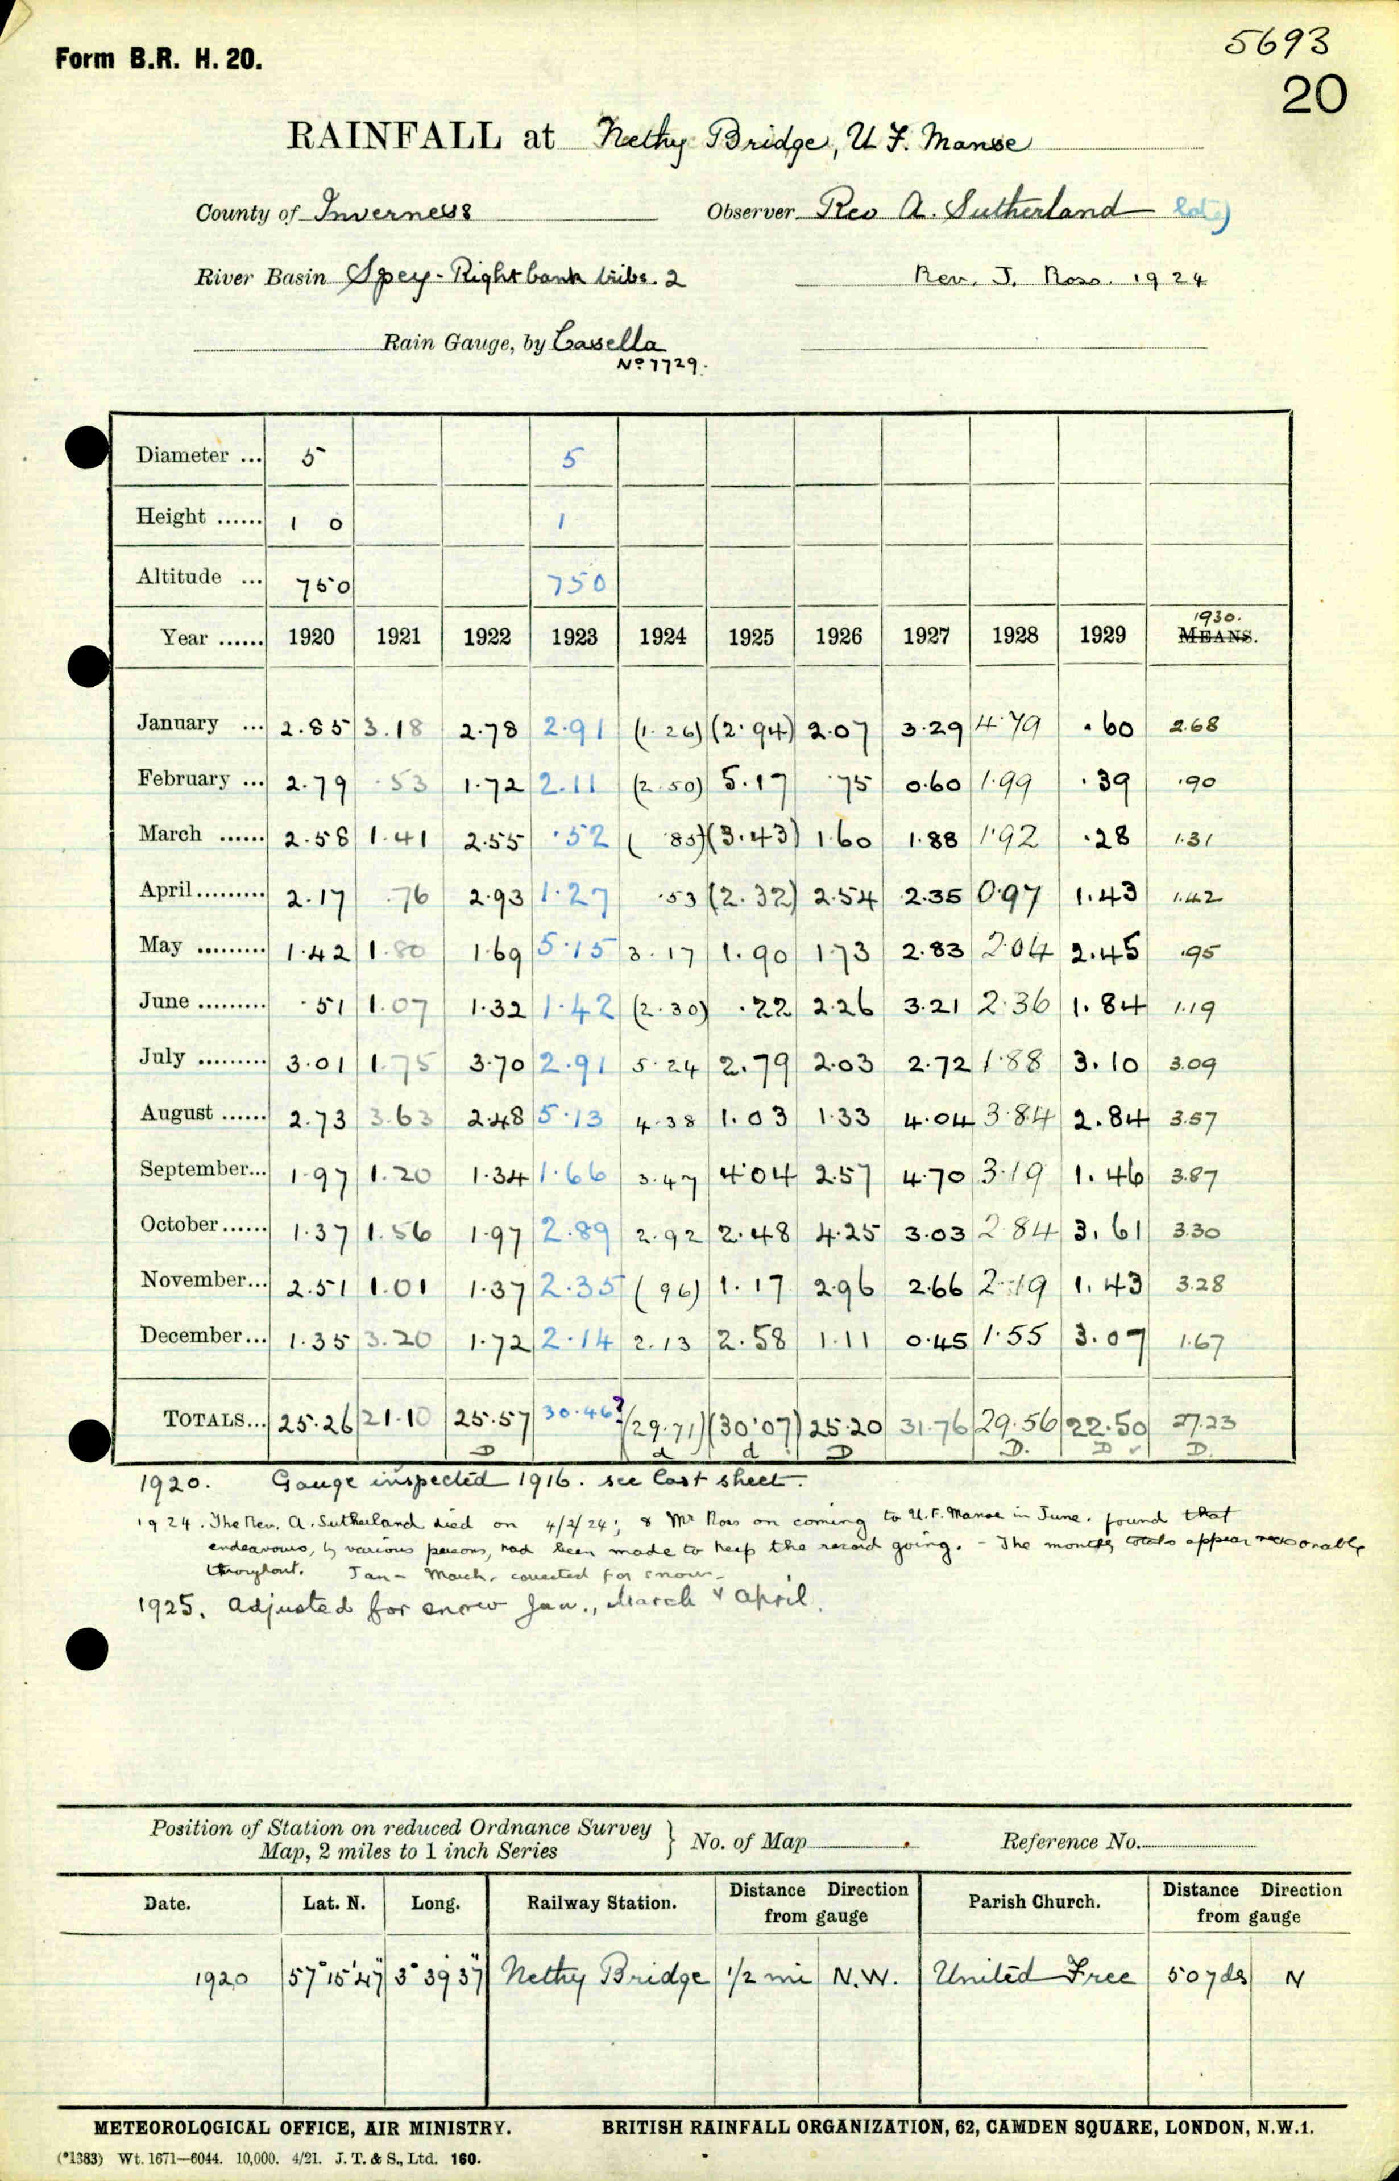 5693
Form B.R. H. 20.
20
RAINFALL at Nethy Bridge, U F. Manse
County of Inverness Observer Rev A. Sutherland late)
River Basin Spey - Right bank tribs. 2 Rev. J. Ross. 1924
Rain Gauge, by Casella
No 7729.
Diameter ... 5 5
Height ...... 1 0 1
Altitude ... 750 750
1930.
Year ...... 1920 1921 1922 1923 1924 1925 1926 1927 1928 1929 MEANS.
January ... 2.85 3.18 2.78 2.91 (1.26) (2.94) 2.07 3.29 4.79 .60 2.68
February ... 2.79 .53 1.72 2.11 (2.50) 5.17 .75 0.60 1.99 .39 .90
March ...... 2.58 1.41 2.55 .52 ( 85) (3.43) 1.60 1.88 1.92 .28 1.31
April ......... 2.17 .76 2.93 1.27 .53 (2.32) 2.54 2.35 0.97 1.43 1.42
May ......... 1.42 1.80 1.69 5.15 3.17 1.90 1.73 2.83 2.04 2.45 .95
June ......... .51 1.07 1.32 1.42 (2.30) .22 2.26 3.21 2.36 1.84 1.19
July ......... 3.01 1.75 3.70 2.91 5.24 2.79 2.03 2.72 1.88 3.10 3.09
August ...... 2.73 3.63 2.48 5.13 4.38 1.03 1.33 4.04 3.84 2.84 3.57
September... 1.97 1.20 1.34 1.66 3.47 4.04 2.57 4.70 3.19 1.46 3.87
October...... 1.37 1.56 1.97 2.89 2.92 2.48 4.25 3.03 2.84 3.61 3.30
November... 2.51 1.01 1.37 2.35 ( 96) 1.17 2.96 2.66 2.19 1.43 3.28
December... 1.35 3.20 1.72 2.14 2.13 2.58 1.11 0.45 1.55 3.07 1.67
TOTALS... 25.26 21.10 25.57 30.46? (29.71) (30.07) 25.20 31.76 29.56 22.50 27.23
D d d D D. D ✓ D.
1920. Gauge inspected 1916. see last sheet.
1924. The Rev. A. Sutherland died on 4/2/24; & Mr Ross on coming to U.F. Manse in June, found that
endeavours, by various persons, had been made to keep the record going. - The monthly totals appear reasonable
throughout. Jan - March, corrected for snow.
1925. Adjusted for snow Jan., March & April.
Position of Station on reduced Ordnance Survey
Map, 2 miles to 1 inch Series } No. of Map Reference No.
Date. Lat. N. Long. Railway Station. Distance Direction from gauge Parish Church. Distance Direction from gauge
1920 57° 15' 47" 3° 39' 37" Nethy Bridge 1/2 mi N.W. United Free 50 yds N
METEOROLOGICAL OFFICE, AIR MINISTRY. BRITISH RAINFALL ORGANIZATION, 62, CAMDEN SQUARE, LONDON, N.W.1.
(*1383) Wt. 1671—6044. 10,000. 4/21. J. T. & S., Ltd. 160.